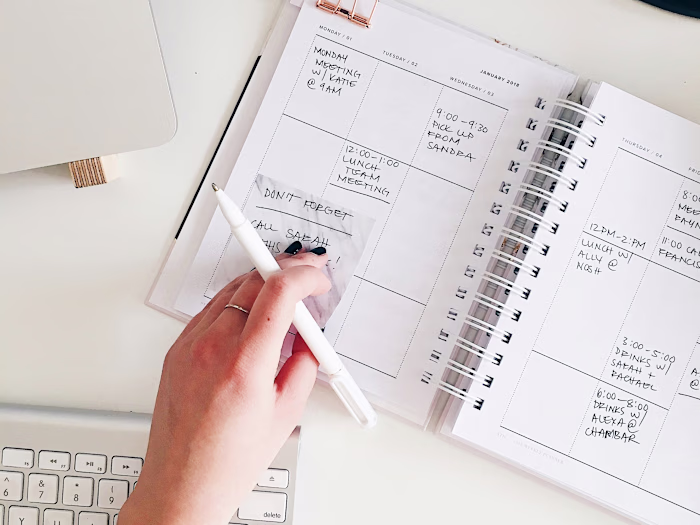 JANUARY 2018
MONDAY / 01
MONDAY
MEETING
W/ KATIE
@ 9AM
TUESDAY / 02
12:00-1:00
LUNCH
TEAM
MEETING
WEDNESDAY / 03
9:00-9:30
PICK UP
FROM
SANDRA
DON'T FORGET
CALL SARAH
THURSDAY / 04
12PM-2PM
LUNCH W/
ALLY @
NOSH
3:00-5:00
DRINKS W/
SARAH +
RACHAEL
6:00-8:00
DRINKS W/
ALEXA @
CHAMBAR
11:00
FRANCIS
6
7
8
9
&
*
(
Y
U
I
delete